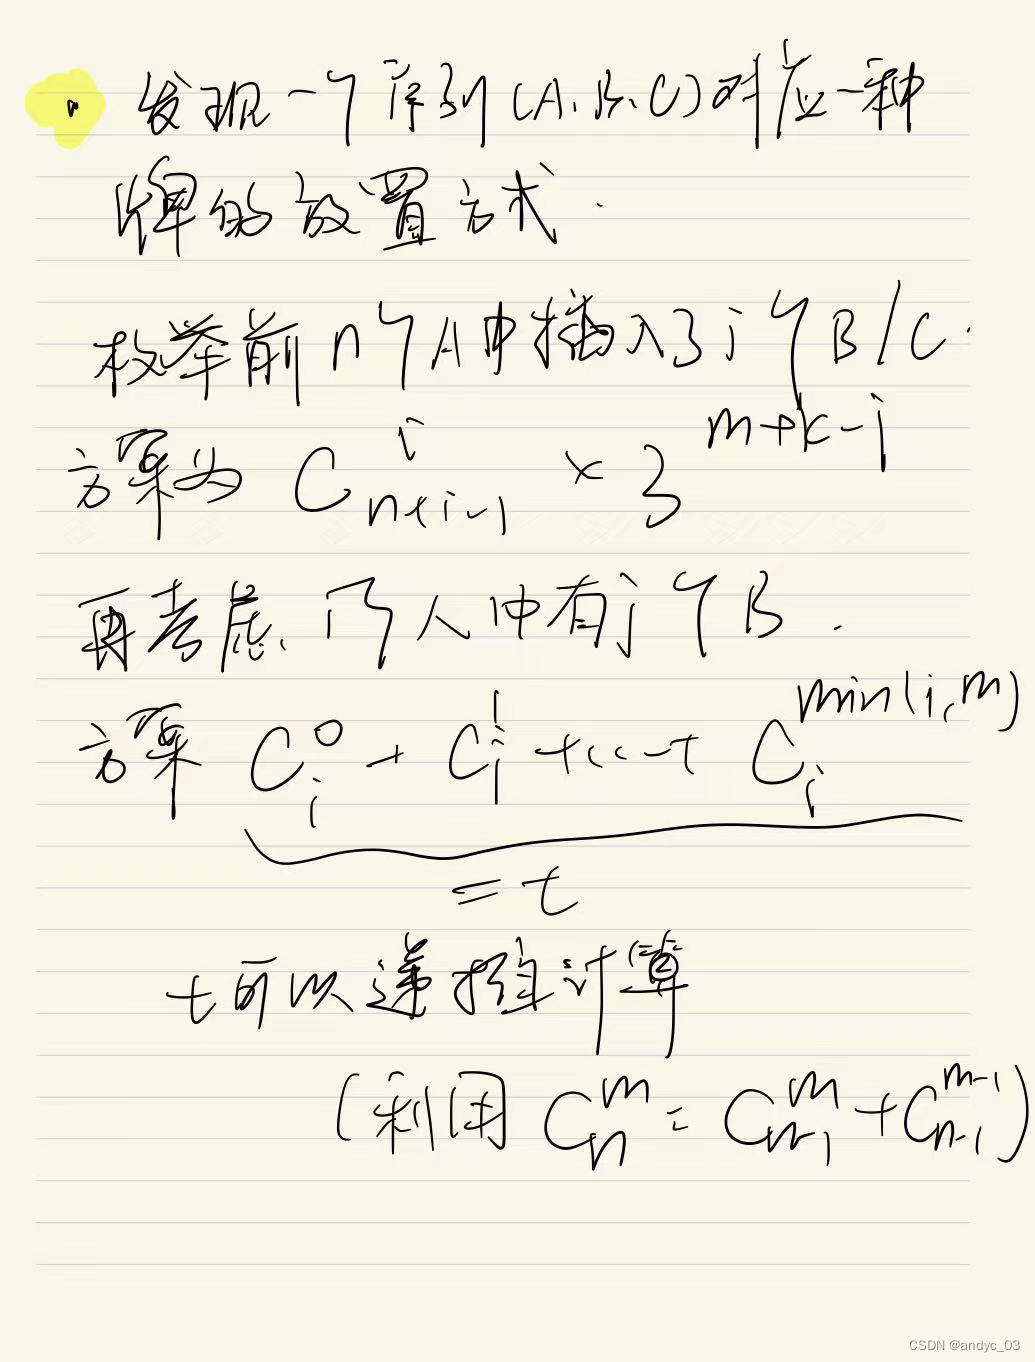 发现一个序列(A、B、C)对应一种
牌的放置方式.
枚举前n个A中插入了i个B/C.
方案为 C_{n+i-1}^{i} × 3^{m+k-i}
再考虑、i个人中有j个B.
方案 C_i^0 + C_i^1 + ... + C_i^{min(i,m)}
= t
t可以递推计算
(利用 C_n^m = C_{n-1}^m + C_{n-1}^{m-1})
CSDN @andyc_03